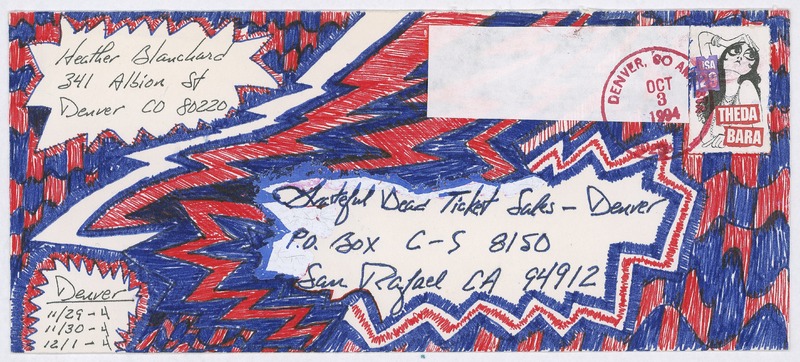 Heather Blanchard
341 Albion St
Denver CO 80220
DENVER, CO
OCT
3
1994
USA
THEDA
BARA
Grateful Dead Ticket Sales - Denver
P.O. Box C-S 8150
San Rafael CA 94912
Denver
11/29 - 4
11/30 - 4
12/1 - 4